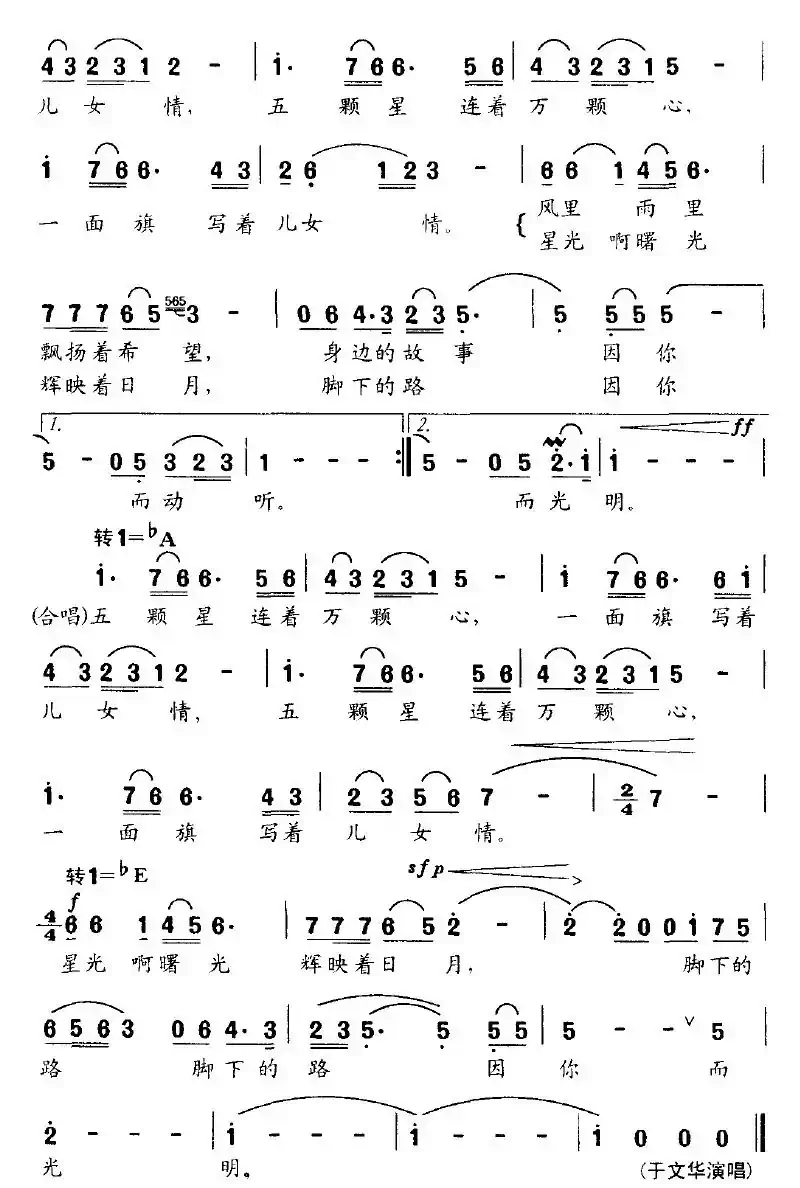 4 3 2 3 1 2 - | i· 7 6 6· 5 6 | 4 3 2 3 1 5 - |
儿 女 情, 五 颗 星 连着 万 颗 心,
i 7 6 6· 4 3 | 2 6 1 2 3 - | 6 6 1 4 5 6· |
一 面 旗 写着 儿女 情。 { 风里 雨 里
星光 啊曙 光
7 7 7 6 5 565 3 - | 0 6 4·3 2 3 5· - | 5 5 5 5 - |
飘扬着希 望, 身边的故 事 因 你
辉映着日 月, 脚下的路 因 你
1. 2. ff
5 - 0 5 3 2 3 | 1 - - - :| 5 - 0 5 2·i | i - - - |
而动 听。 而光 明。
转1=♭A
i· 7 6 6· 5 6 | 4 3 2 3 1 5 - | i 7 6 6· 6 i |
(合唱)五 颗 星 连着 万 颗 心, 一 面 旗 写着
4 3 2 3 1 2 - | i· 7 6 6· 5 6 | 4 3 2 3 1 5 - |
儿 女 情, 五 颗 星 连着 万 颗 心,
i· 7 6 6· 4 3 | 2 3 5 6 7 - | 2/4 7 - |
一 面 旗 写着 儿 女 情。
转1=♭E sfp
f
4/4 6 6 1 4 5 6· | 7 7 7 6 5 2 - | 2 2 0 0 i 7 5 |
星光 啊曙 光 辉映着日 月, 脚下的
6 5 6 3 0 6 4·3 | 2 3 5· 5 5 5 | 5 - - ∨ 5 |
路 脚下的 路 因 你 而
2 - - - | i - - - | i - - - | i 0 0 0 ‖
光 明。 (于文华演唱)